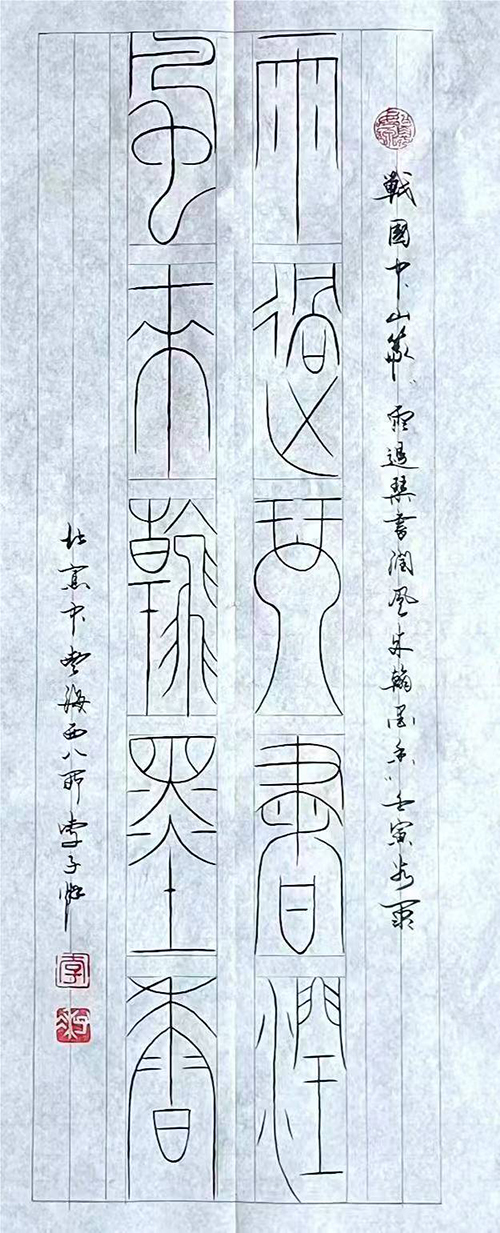 戰國中山篆 雨過琴書潤風來翰墨香 壬寅
雨過琴書潤
風來翰墨香
北京中南海西八所李子
李